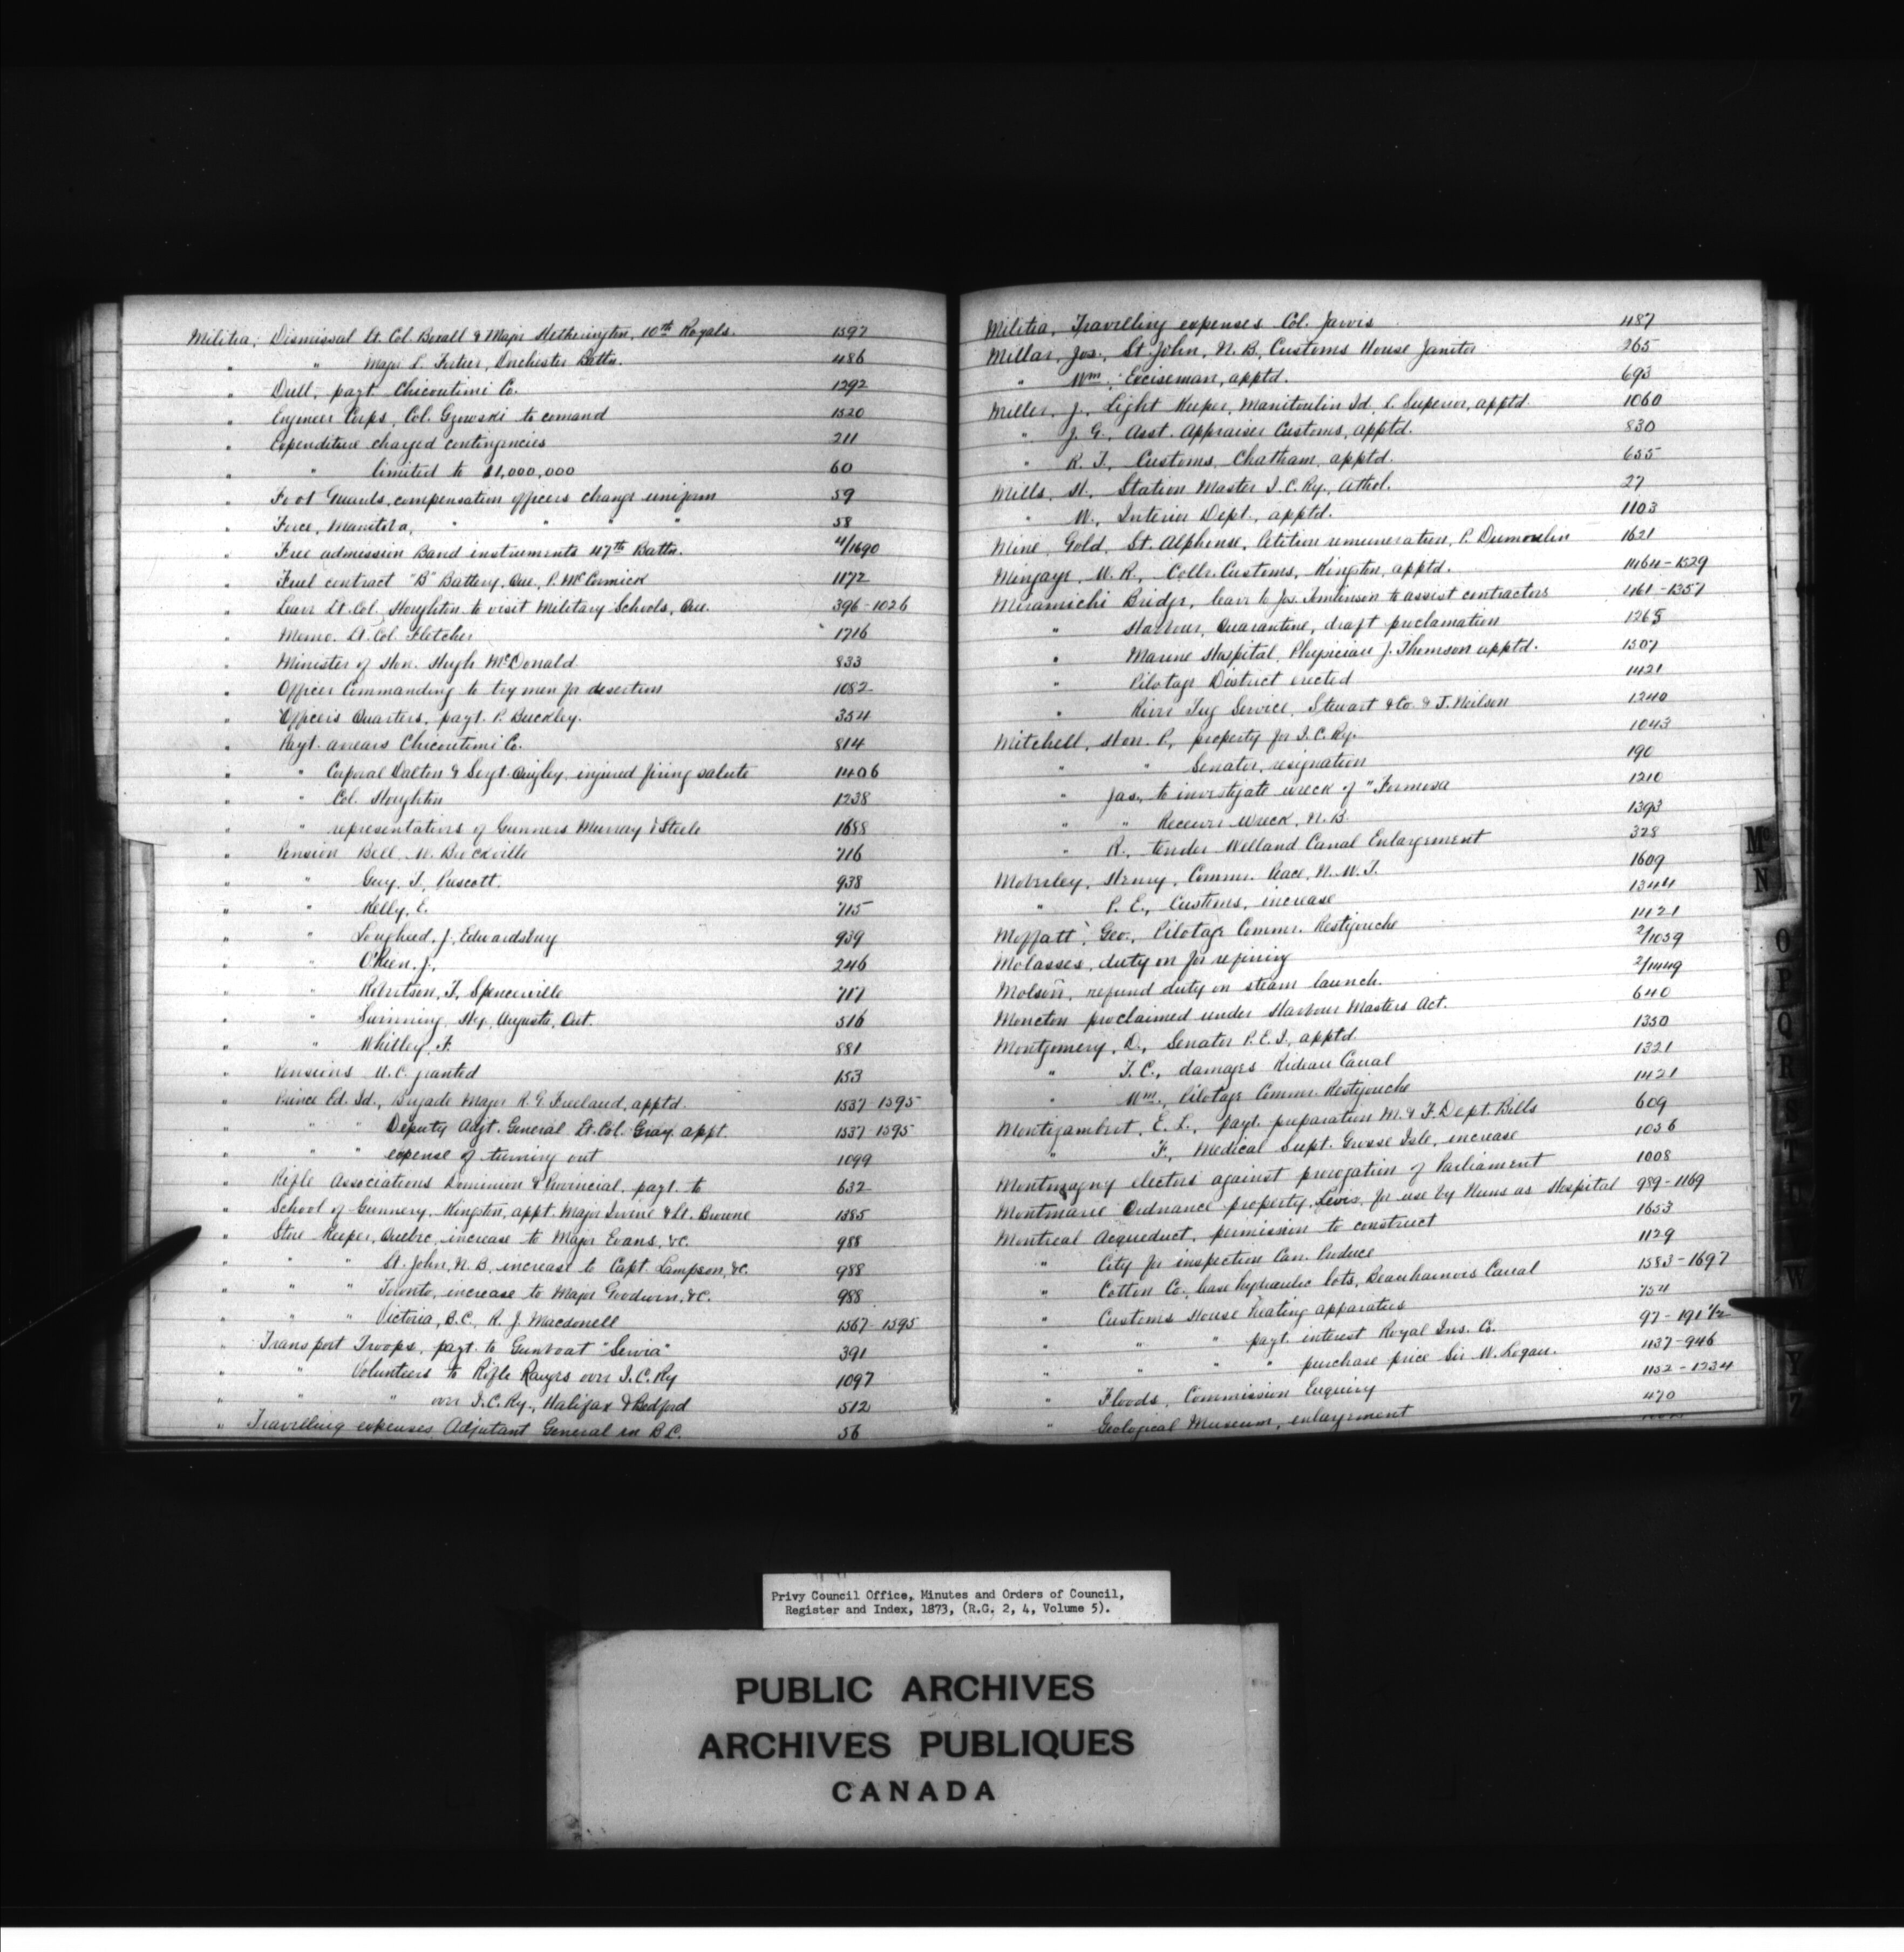 Militia, Dismissal Lt. Col. Boxall & Major Hetherington, 10th Royals. 1597
" " Major L. Fortier, Dorchester Battn. 486
" Drill, payt. Chicoutimi Co. 1292
" Engineer Corps, Col. Gzowski to comand 1520
" Expenditure charged contingencies 211
" " limited to $1,000,000 60
" Foot Guards, compensation officers change uniform 59
" Force, Manitoba, " " " " 58
" Free admission Band instruments 47th Battn. 4/1690
" Fuel contract "B" Battery, Que., P. McCormick 1172
" Leave Lt. Col. Houghton to visit Military Schools, Que. 396-1026
" Memo. Lt. Col. Fletcher 1716
" Minister of Hon. Hugh McDonald 833
" Officer Commanding to try men for desertion 1082
" Officers Quarters, payt. P. Buckley. 354
" Payt. arrears Chicoutimi Co. 814
" " Corporal Dalton & Sergt. Quigley, injured firing salute 1406
" " Col. Houghton 1238
" " representatives of Gunners Murray & Steele 1688
" Pension Bell, W. Brockville 716
" " Guy, T, Prescott. 938
" " Kelly, E. 715
" " Lougheed, J, Edwardsburg 939
" " O'Reen, J, 246
" " Robertson, T, Spencerville 717
" " Hy. Augusta, Ont. 516
" " Whitley, F. 881
" Pensions U.C. granted 153
" Prince Ed. Id., Brigade Major R. G. Freeland, apptd. 1537-1595
" " " Deputy Adjt. General Lt. Col. Gray appt. 1537-1595
" " " expense of turning out 1099
" Rifle Associations Dominion & Provincial, payt. to 632
" School of Gunnery, Kingston, appt. Major Irvine & Lt. Browne 1385
" Store Keeper, Quebec, increase to Major Evans, &c. 988
" " " St. John, N.B. increase to Capt. Lampson, &c. 988
" " " Toronto, increase to Major Goodwin, &c. 988
" " " Victoria, B.C., R. J. Macdonell 1567-1595
" Transport Troops, payt. to Gunboat "Sewia" 391
" " Volunteers to Rifle Ranges over I.C.Ry 1097
" " " over I.C.Ry., Halifax & Bedford 512
" Travelling expenses Adjutant General in B.C. 56
Militia, Travelling expenses Col. Jarvis 487
Millar, Jos., St. John, N.B. Customs House Janitor 265
" Wm., Exciseman, apptd. 693
Miller, J., Light Keeper, Manitoulin Id., L. Superior, apptd. 1060
" J. G., Asst. Appraiser Customs, apptd. 830
" R. T., Customs, Chatham, apptd. 655
Mills, H., Station Master I.C.Ry., Athol. 27
" W., Interior Dept., apptd. 1103
Mine, Gold, St. Alphonse, Petition remuneration, P. Dumoulin 1621
Mingaye, W. R., Collr. Customs, Kingston, apptd. 1464-1529
Miramichi Bridge, leave to Jos. Tomlinson to assist contractors 461-1357
" Harbour, Quarantine, draft proclamation 1265
" Marine Hospital, Physician J. Thomson apptd. 1507
" Pilotage District erected 1421
" River Tug Service, Stewart & Co. & T. Neilson 1240
Mitchell, Hon. P., property for I.C.Ry. 1043
" " Senator, resignation 190
" Jas., to investigate wreck of "Formosa 1210
" " Receiver wreck, N.B. 1393
" R., tender Welland Canal Enlargement 328
Moberley, Henry, Commr. Peace, N.W.T. 1609
" P. E., Customs, increase 1344
Moffatt, Geo., Pilotage Commr. Restigouche 1421
Molasses, duty on for refining 2/1059
Molson, refund duty on steam launch. 2/1449
Moncton proclaimed under Harbour Masters Act. 640
Montgomery, D., Senator P.E.I., apptd. 1350
" T. C., damages Rideau Canal 1321
" Wm., Pilotage Commr. Restigouche 1421
Montizambert, E. L., payt. preparation M. & F. Dept. Bills 609
" F., Medical Supt. Grosse Isle, increase 1056
Montmagny electors against prorogation of Parliament 1008
Montmarie Ordnance property, Levis, for use by Nuns as Hospital 989-1169
Montreal Acqueduct, permission to construct 1653
" City for inspection Can. Produce 1129
" Cotton Co., lease hydraulic lots, Beauharnois Canal 1583-1697
" Customs House heating apparatus 754
" " " payt. interest Royal Ins. Co. 97-191 1/2
" " " purchase price Sir W. Logan. 1137-946
" Floods, Commission Enquiry 1152-1234
" Geological Museum, enlargement 470
Mc
N
O
P
Q
R
S
T
U
W
Y
Z
Privy Council Office, Minutes and Orders of Council,
Register and Index, 1873, (R.G. 2, 4, Volume 5).
PUBLIC ARCHIVES
ARCHIVES PUBLIQUES
CANADA